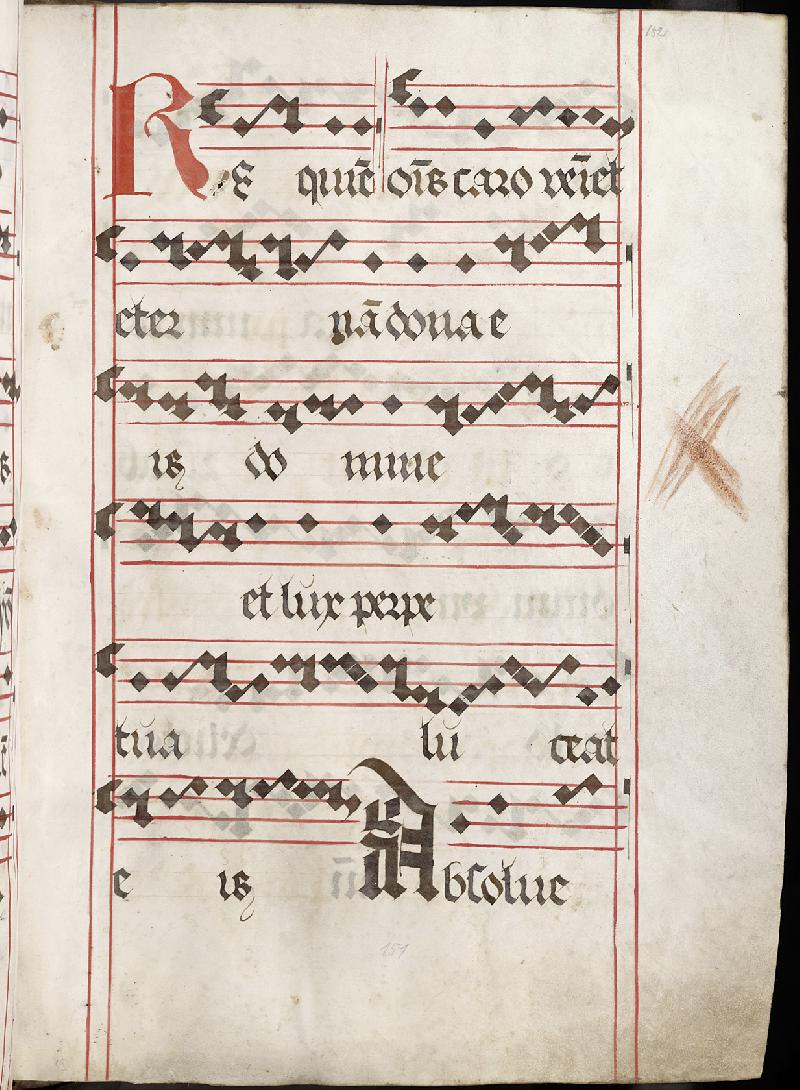 152
Re quiē oīs caro veīet
eter nā dona e
is do mine
et lux perpe
tua lu ceat
e is Absolue
151